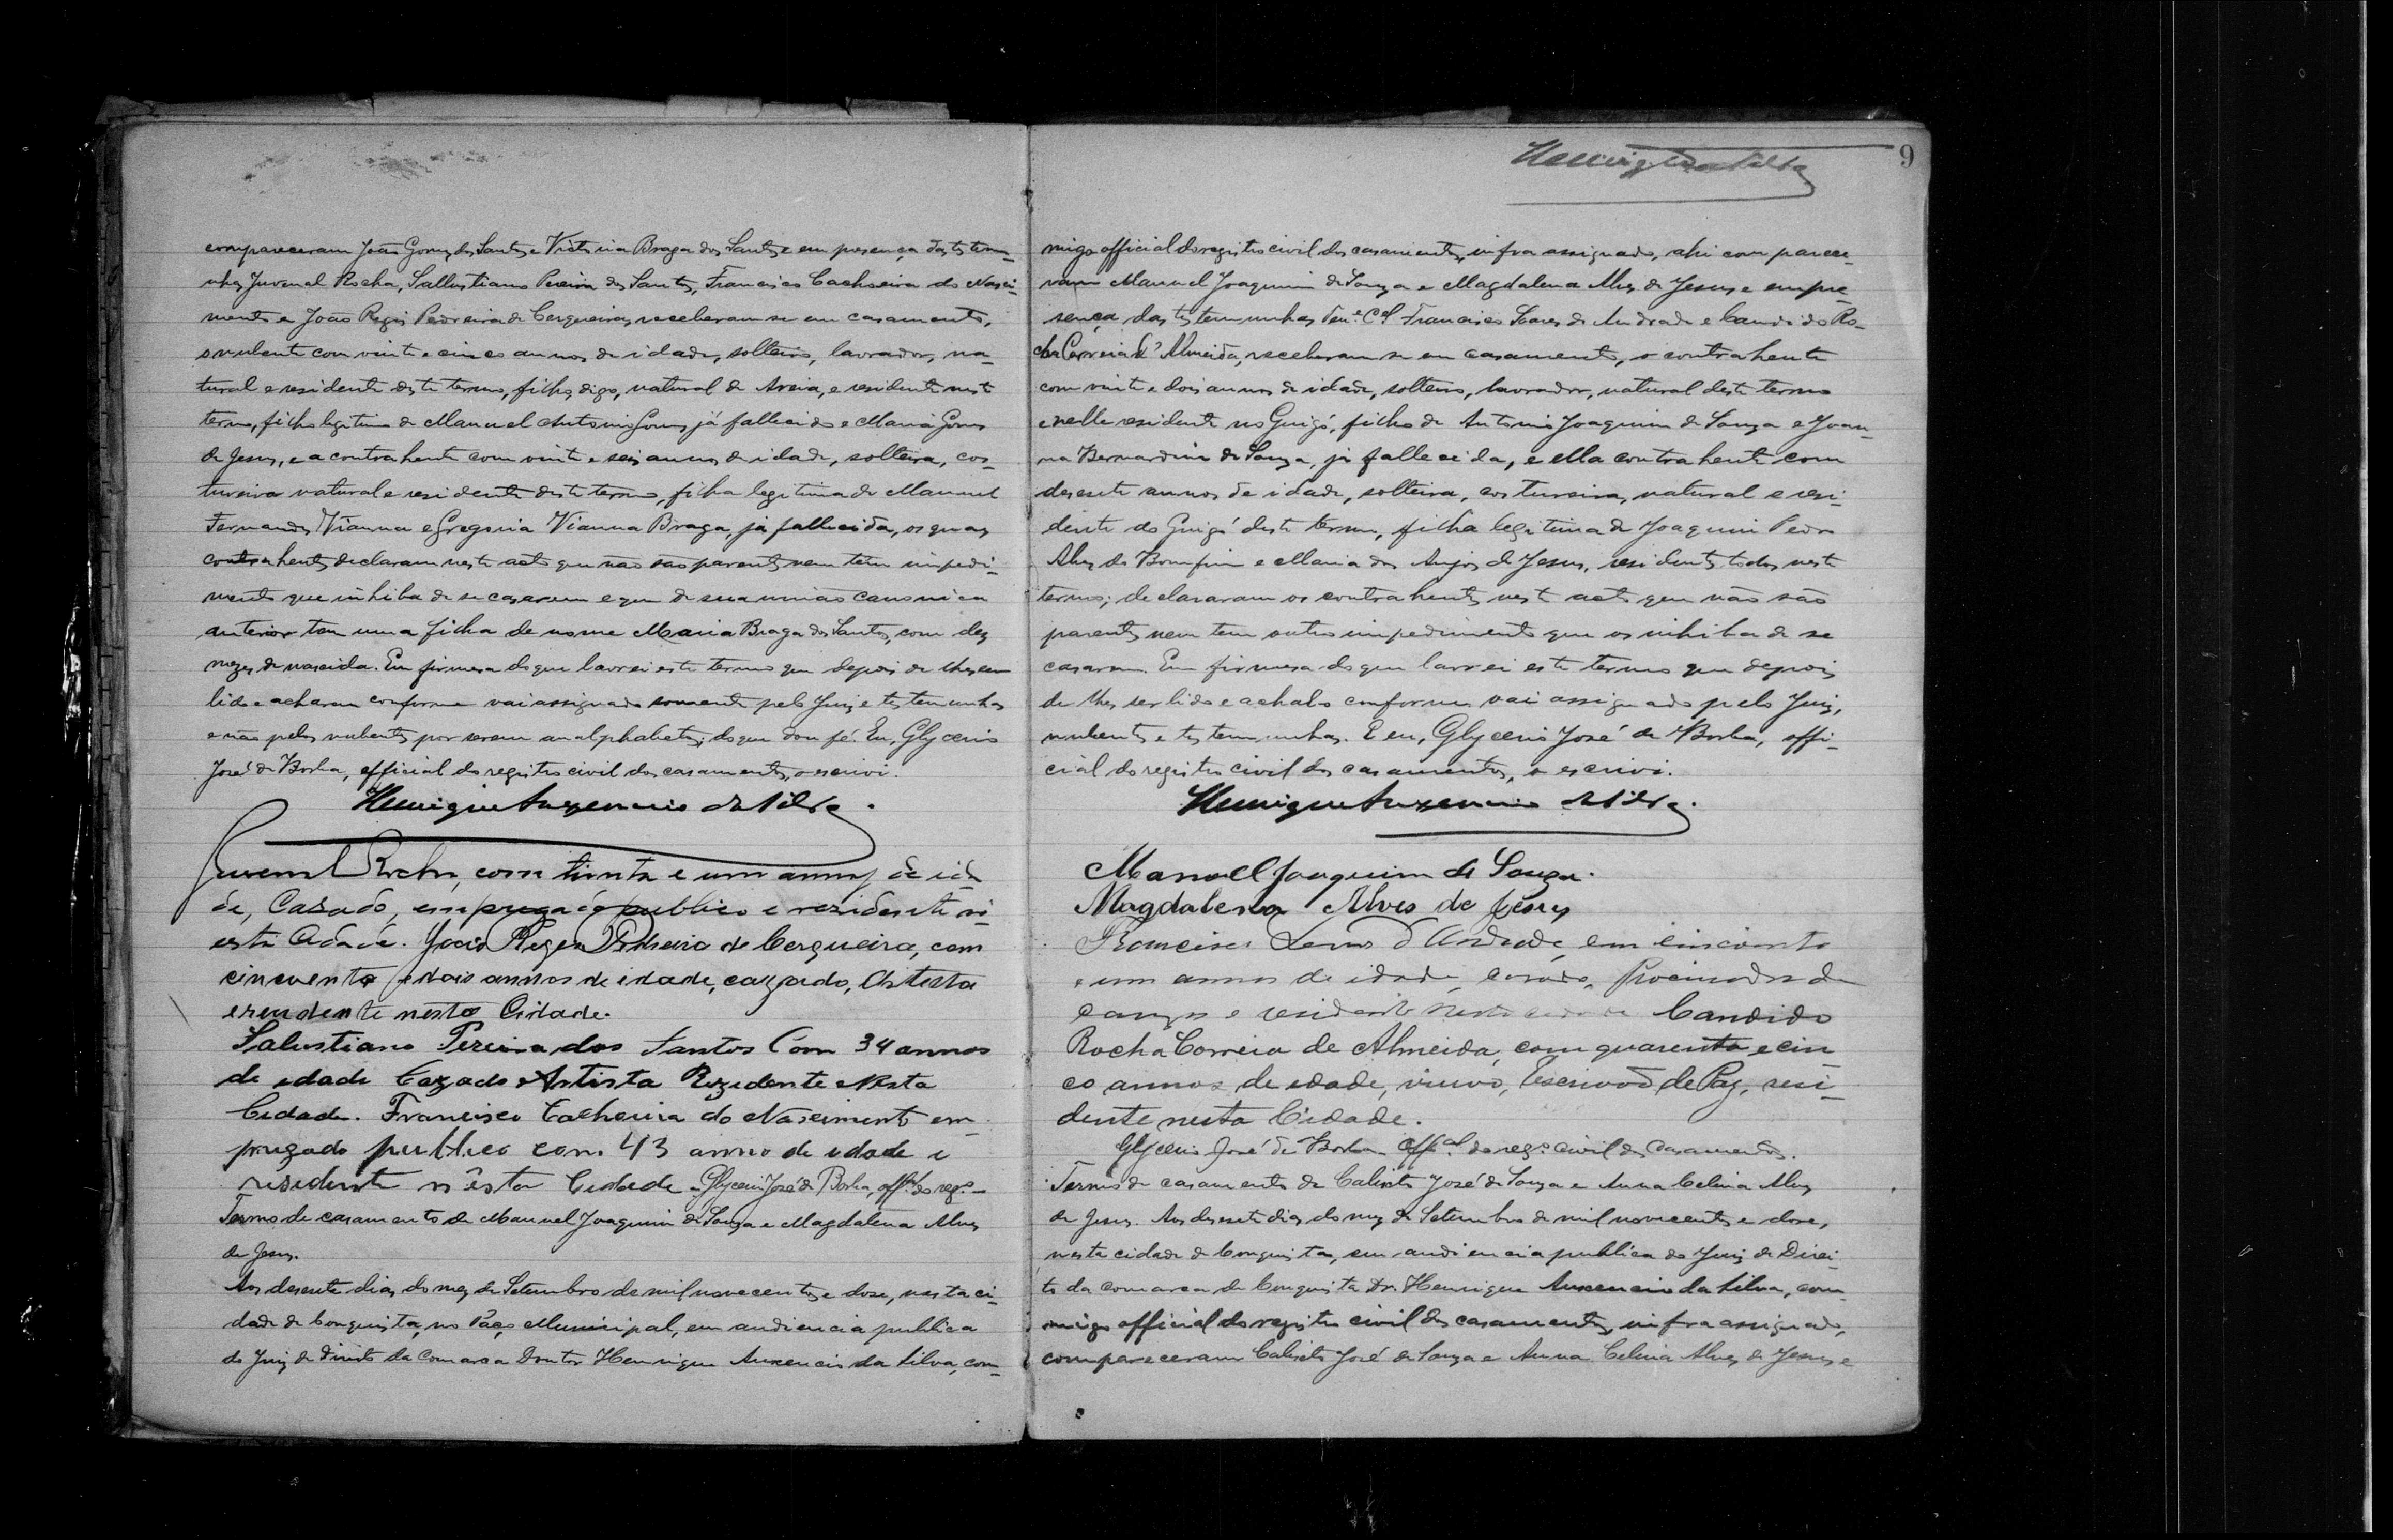 compareceram João Gomes dos Santos e Victoria Braga dos Santos e em presença das testemu-
nhas Juvenal Rocha, Sallustiano Pereira dos Santos, Francisco Cachoeira do Nasci-
mento e João Regis Pedreira de Cerqueira, receberam se em casamento,
o nubente com vinte e cinco annos de idade, solteiro, lavrador, na-
tural e residente deste termo, filho, digo, natural de Areia, e residente neste
termo, filho legitimo de Manuel Antonio Gomes já fallecido e Maria Gomes
de Jesus, e a contrahente com vinte e seis annos de idade, solteira, cos-
tureira natural e residente deste termo, filha legitima de Manuel
Fernandes Vianna e Gregoria Vianna Braga, já fallecida, os quaes
contrahentes declaram neste acto que não são parentes nem têm impedi-
mento que inhiba de se casarem e que de sua união canonica
anterior tem uma filha de nome Maria Braga dos Santos, com dez
mezes de nascida. Em firmesa do que lavrei este termo que depois de lhes ser
lido e acharam conforme vai assignado somente pelo Juiz e testemunhas
e não pelos nubentes por serem analphabetos; do que dou fé. Eu, Glycerio
José de Borba, official do registro civil dos casamentos, o escrivi.
Henrique Auxencio da Silva.
Juvenal Rocha, com trinta e um annos de ida
de, Casado, empregado publico e residente n'
esta Cidade. João Regis Pedreira de Cerqueira, com
cincoenta e dois annos de idade, cazado, Artista
e rendente nesta Cidade.
Salustiano Pereira dos Santos Com 34 annos
de edade Cazado Artista Rezedente Nesta
Cidade. Francisco Cachoeira do Nascimento em-
pregado publico com 43 anno de idade e
residente n'esta Cidade. Glycerio José de Borba, offal do rego
Termo de casamento de Manuel Joaquim de Souza e Magdalena Alves
de Jesus.
Aos desesete dias do mez de Setembro de mil novecentos e dose, nesta ci-
dade de Conquista, no Paço Municipal, em audiencia publica
do Juiz de Direito da Comarca Doutor Henrique Auxencio da Silva, com-
9
Henrique da Silva
migo official do registro civil dos casamentos, infra assignado, ahi comparece-
ram Manuel Joaquim de Souza e Magdalena Alves de Jesus e em pre-
sença das testemunhas Tene Cel Francisco Soares de Andrade e Candido Ro-
cha Correia d'Almeida, receberam se em casamento, o contrahente
com vinte e dois annos de idade, solteiro, lavrador, natural deste termo
e nelle residente no Guigó, filho de Antonio Joaquim de Souza e Joan-
na Bernardina de Souza, já fallecida, e ella contrahente com
desesete annos de idade, solteira, costureira, natural e resi-
dente do Guigó deste termo, filha legitima de Joaquim Pedro
Alves do Bomfim e Maria dos Anjos de Jesus, residentes todos neste
termo; declararam os contrahentes neste acto que não são
parentes nem tem outro impedimento que os inhiba de se
casaram. Em firmesa do que lavrei este termo que depois
de lhes ser lido e achalo conforme vai assignado pelo Juiz,
nubentes e testemunhas. E eu, Glycerio José de Borba, offi-
cial do registro civil dos casamentos, o escrivi.
Henrique Auxencio da Silva.
Manoel Joaquim de Souza.
Magdalena Alves de Jesus
Francisco d'Andrade, com cincoenta
e um annos de idade, casado, Procurador de
e residente nesta cidade Candido
Rocha Correia de Almeida, com quarenta e cin
co annos de edade, viuvo, Escrivão de Paz, resi-
dente nesta Cidade.
Glycerio José de Borba offal do rego civil dos Casamentos.
Termo de casamento de Calixto José de Souza e Anna Celina Alves
de Jesus. Aos desesete dias do mez de Setembro de mil novecentos e dose,
nesta cidade de Conquista, em audiencia publica do Juiz de Direi-
to da comarca de Conquista Dr. Henrique Auxencio da Silva, com-
migo official do registro civil dos casamentos, infra assignado,
compareceram Calixto José de Souza e Anna Celina Alves de Jesus e